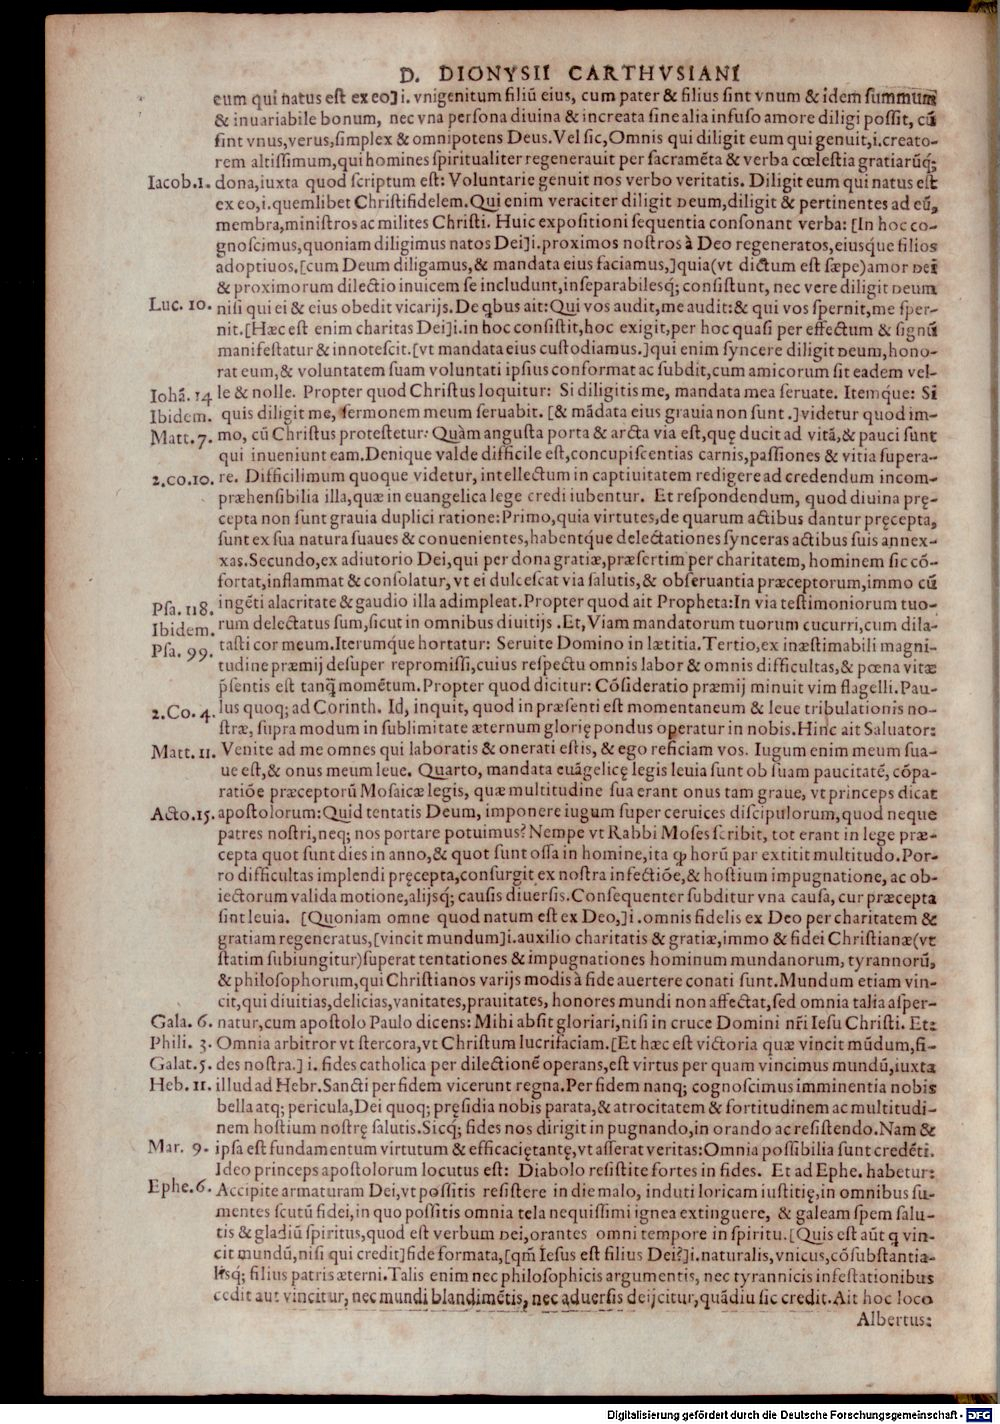 D. DIONYSII CARTHVSIANI
eum qui natus est ex eo] i. vnigenitum filiũ eius, cum pater & filius sint vnum & idem summum
& inuariabile bonum, nec vna persona diuina & increata sine alia infuso amore diligi possit, cũ
sint vnus, verus, simplex & omnipotens Deus. Vel sic, Omnis qui diligit eum qui genuit, i. creato-
rem altissimum, qui homines spiritualiter regenerauit per sacramẽta & verba cœlestia gratiarũq́;
Iacob. 1. dona, iuxta quod scriptum est: Voluntarie genuit nos verbo veritatis. Diligit eum qui natus est
ex eo, i. quemlibet Christifidelem. Qui enim veraciter diligit Deum, diligit & pertinentes ad eũ,
membra, ministros ac milites Christi. Huic expositioni sequentia consonant verba: [In hoc co-
gnoscimus, quoniam diligimus natos Dei] i. proximos nostros à Deo regeneratos, eiusque filios
adoptiuos. [cum Deum diligamus, & mandata eius faciamus,] quia (vt dictum est sæpe) amor Dei
& proximorum dilectio inuicem se includunt, inseparabilesq́; consistunt, nec vere diligit Deum
Luc. 10. nisi qui ei & eius obedit vicarijs. De qbus ait: Qui vos audit, me audit: & qui vos spernit, me sper-
nit. [Hæc est enim charitas Dei] i. in hoc consistit, hoc exigit, per hoc quasi per effectum & signũ
manifestatur & innotescit. [vt mandata eius custodiamus.] qui enim syncere diligit Deum, hono-
rat eum, & voluntatem suam voluntati ipsius conformat ac subdit, cum amicorum sit eadem vel-
Iohã. 14 le & nolle. Propter quod Christus loquitur: Si diligitis me, mandata mea seruate. Itemque: Si
Ibidem. quis diligit me, sermonem meum seruabit. [& mãdata eius grauia non sunt.] videtur quod im-
Matt. 7. mo, cũ Christus protestetur: Quàm angusta porta & arcta via est, quę ducit ad vitã, & pauci sunt
qui inueniunt eam. Denique valde difficile est, concupiscentias carnis, passiones & vitia supera-
2. co. 10. re. Difficilimum quoque videtur, intellectum in captiuitatem redigere ad credendum incom-
præhensibilia illa, quæ in euangelica lege credi iubentur. Et respondendum, quod diuina prę-
cepta non sunt grauia duplici ratione: Primo, quia virtutes, de quarum actibus dantur pręcepta,
sunt ex sua natura suaues & conuenientes, habentq́ue delectationes synceras actibus suis annex-
xas. Secundo, ex adiutorio Dei, qui per dona gratiæ, præsertim per charitatem, hominem sic cõ-
fortat, inflammat & consolatur, vt ei dulcescat via salutis, & obseruantia præceptorum, immo cũ
Psa. 118. ingẽti alacritate & gaudio illa adimpleat. Propter quod ait Propheta: In via testimoniorum tuo-
Ibidem. rum delectatus sum, sicut in omnibus diuitijs. Et, Viam mandatorum tuorum cucurri, cum dila-
Psa. 99. tasti cor meum. Iterumq́ue hortatur: Seruite Domino in lætitia. Tertio, ex inæstimabili magni-
tudine præmij desuper repromissi, cuius respectu omnis labor & omnis difficultas, & pœna vitæ
p̃sentis est tanq̃ momẽtum. Propter quod dicitur: Cõsideratio præmij minuit vim flagelli. Pau-
2. Co. 4. lus quoq; ad Corinth. Id, inquit, quod in præsenti est momentaneum & leue tribulationis no-
stræ, supra modum in sublimitate æternum glorię pondus operatur in nobis. Hinc ait Saluator:
Matt. 11. Venite ad me omnes qui laboratis & onerati estis, & ego reficiam vos. Iugum enim meum sua-
ue est, & onus meum leue. Quarto, mandata euãgelicę legis leuia sunt ob suam paucitatẽ, cõpa-
ratiõe præceptorũ Mosaicæ legis, quæ multitudine sua erant onus tam graue, vt princeps dicat
Acto. 15. apostolorum: Quid tentatis Deum, imponere iugum super ceruices discipulorum, quod neque
patres nostri, neq; nos portare potuimus? Nempe vt Rabbi Moses scribit, tot erant in lege præ-
cepta quot sunt dies in anno, & quot sunt ossa in homine, ita ꝙ horũ par extitit multitudo. Por-
ro difficultas implendi pręcepta, consurgit ex nostra infectiõe, & hostium impugnatione, ac ob-
iectorum valida motione, alijsq́; causis diuersis. Consequenter subditur vna causa, cur præcepta
sint leuia. [Quoniam omne quod natum est ex Deo,] i. omnis fidelis ex Deo per charitatem &
gratiam regeneratus, [vincit mundum] i. auxilio charitatis & gratiæ, immo & fidei Christianæ (vt
statim subiungitur) superat tentationes & impugnationes hominum mundanorum, tyrannorũ,
& philosophorum, qui Christianos varijs modis à fide auertere conati sunt. Mundum etiam vin-
cit, qui diuitias, delicias, vanitates, prauitates, honores mundi non affectat, sed omnia talia asper-
Gala. 6. natur, cum apostolo Paulo dicens: Mihi absit gloriari, nisi in cruce Domini nr̃i Iesu Christi. Et:
Phili. 3. Omnia arbitror vt stercora, vt Christum lucrifaciam. [Et hæc est victoria quæ vincit mũdum, fi-
Galat. 5. des nostra.] i. fides catholica per dilectionẽ operans, est virtus per quam vincimus mundũ, iuxta
Heb. 11. illud ad Hebr. Sancti per fidem vicerunt regna. Per fidem nanq; cognoscimus imminentia nobis
bella atq; pericula, Dei quoq; pręsidia nobis parata, & atrocitatem & fortitudinem ac multitudi-
nem hostium nostrę salutis. Sicq́; fides nos dirigit in pugnando, in orando ac resistendo. Nam &
Mar. 9. ipsa est fundamentum virtutum & efficacię tantę, vt asserat veritas: Omnia possibilia sunt credẽti.
Ideo princeps apostolorum locutus est: Diabolo resistite fortes in fides. Et ad Ephe. habetur:
Ephe. 6. Accipite armaturam Dei, vt possitis resistere in die malo, induti loricam iustitię, in omnibus su-
mentes scutũ fidei, in quo possitis omnia tela nequissimi ignea extinguere, & galeam spem salu-
tis & gladiũ spiritus, quod est verbum Dei, orantes omni tempore in spiritu. [Quis est aũt q vin-
cit mundũ, nisi qui credit] fide formata, [qm̃ Iesus est filius Dei?] i. naturalis, vnicus, cõsubstantia-
lisq́; filius patris æterni. Talis enim nec philosophicis argumentis, nec tyrannicis infestationibus
cedit aut vincitur, nec mundi blandimẽtis, nec aduersis deijcitur, quãdiu sic credit. Ait hoc loco
Albertus:
Digitalisierung gefördert durch die Deutsche Forschungsgemeinschaft - DFG